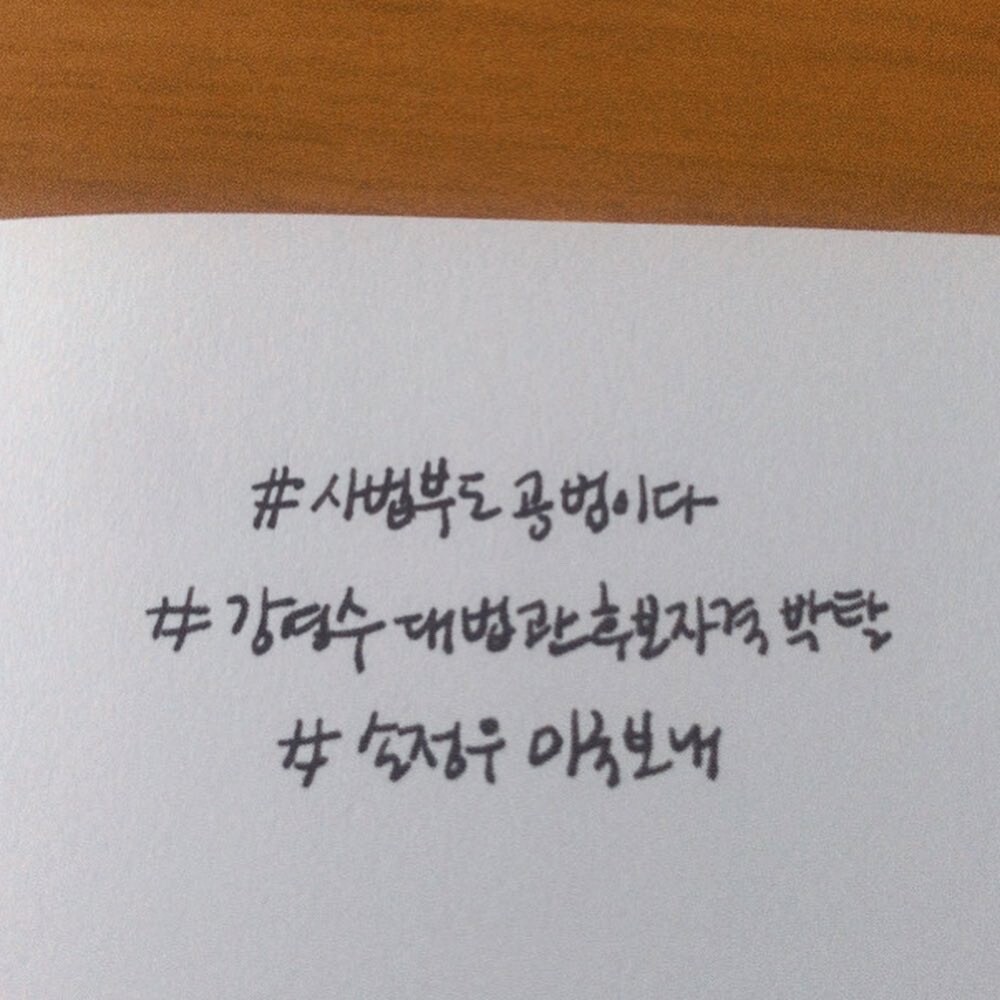 #사법부도 공범이다
#강영수 대법관후보자격 박탈
#손정우 미국보내